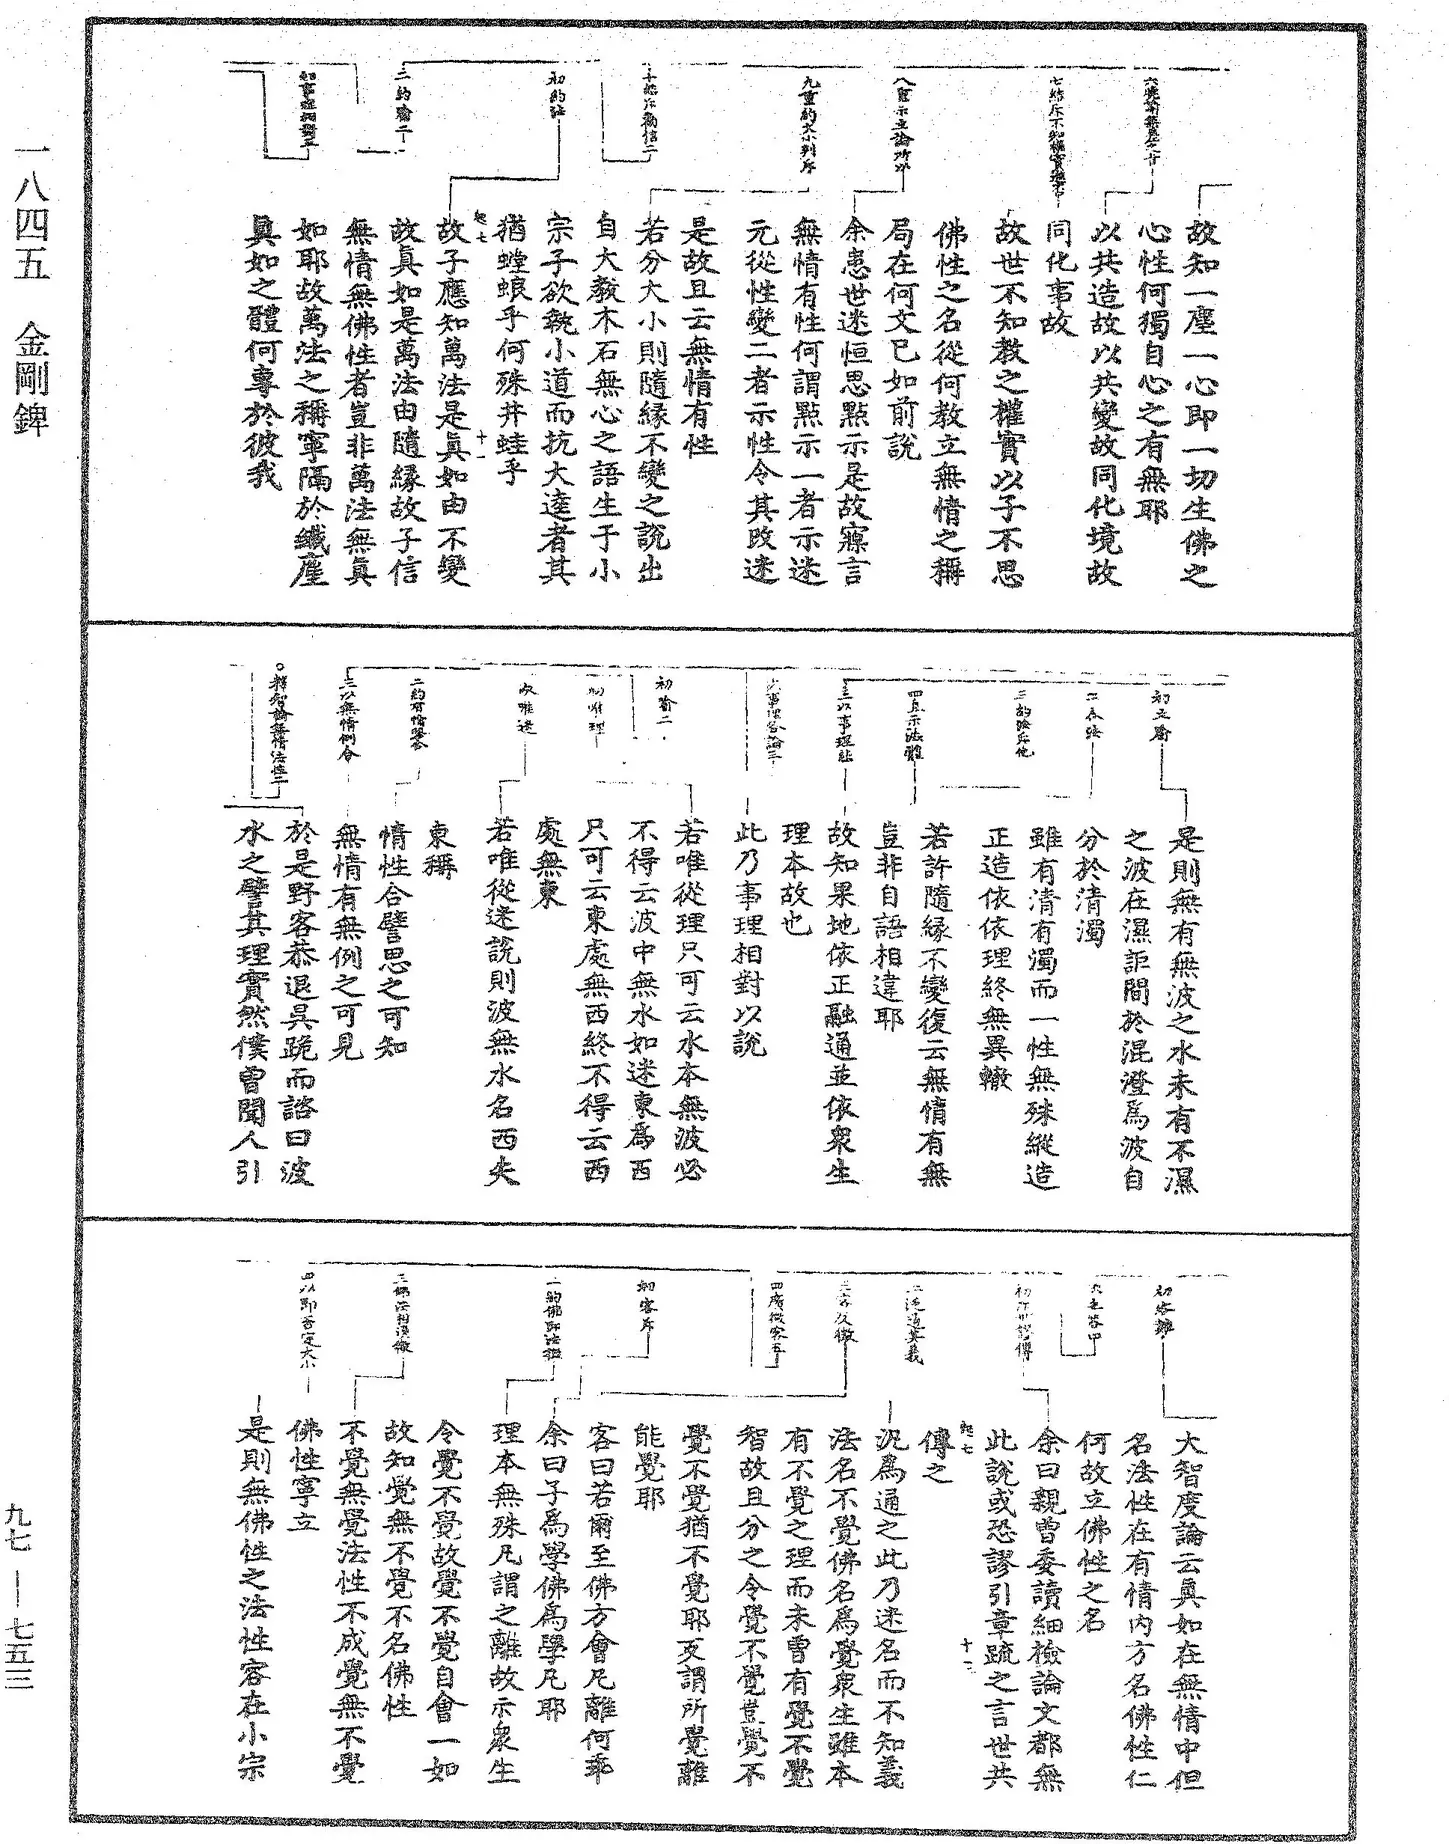 一八四五　金剛錍
六噵
七結斥不知權實
八重示立論所以
九重約大小判斥
十結斥勸信二
初約法
二約喻二
初事理相對三
故知一塵一心即一切生佛之
心性何獨自心之有無耶
以共造故以共變故同化境故
同化事故
故世不知教之權實以子不思
佛性之名從何教立無情之稱
局在何文已如前說
余患世迷恒思點示是故寐言
無情有性何謂點示一者示迷
元從性變二者示性令其改迷
是故且云無情有性
若分大小則隨緣不變之說出
自大教木石無心之語生于小
宗子欲執小道而抗大達者其
猶螳蜋乎何殊井蛙乎
故子應知萬法是真如由不變
故真如是萬法由隨緣故子信
無情無佛性者豈非萬法無真
如耶故萬法之稱寧隔於纖塵
真如之體何專於彼我
初立喻
二合法
三約法斥他
四直示法體
三以事理結
次事理各論三
初喻二
初唯理
次唯迷
二約有情合
三以無情例合
○釋智論無情法性二
是則無有無波之水未有不濕
之波在濕詎間於混澄爲波自
分於清濁
雖有清有濁而一性無殊縱造
正造依依理終無異轍
若許隨緣不變復云無情有無
豈非自語相違耶
故知果地依正融通並依衆生
理本故也
此乃事理相對以說
若唯從理只可云水本無波必
不得云波中無水如迷東爲西
只可云東處無西終不得云西
處無東
若唯從迷說則波無水名西失
東稱
情性合譬思之可知
無情有無例之可見
於是野客恭退吳跪而諮曰波
水之譬其理實然僕曾聞人引
初客難
次主答四
初斥世謬傳
二泛通其義
三客反徵
四廣徵客五
初客斥
一約佛即法徵
三佛法相望徵
四以即否定大小
大智度論云真如在無情中但
名法性在有情內方名佛性仁
何故立佛性之名
余曰親曾委讀細檢論文都無
此說或恐謬引章疏之言世共
傳之
況爲通之此乃迷名而不知義
法名不覺佛名爲覺衆生雖本
有不覺之理而未曾有覺不覺
智故且分之令覺不覺豈覺不
覺不覺猶不覺耶反謂所覺離
能覺耶
客曰若爾至佛方會凡離何乖
余曰子爲學佛爲學凡耶
理本無殊凡謂之離故示衆生
令覺不覺故覺不覺自會一如
故知覺無不覺不名佛性
不覺無覺法性不成覺無不覺
佛性寧立
是則無佛性之法性容在小宗
九七—七五三